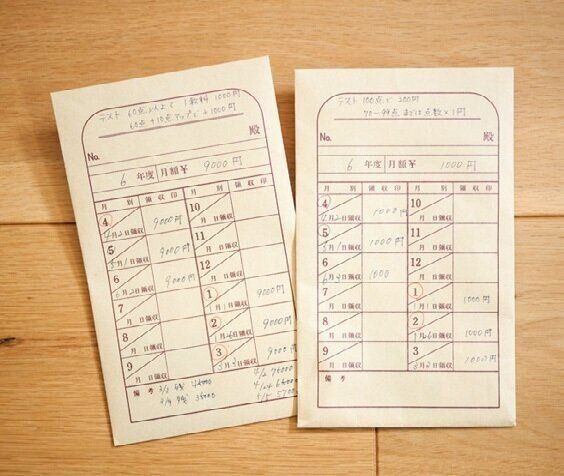 テスト 60点以上で 1教科 1000円
60点+10点アップごと+1000円
殿
No.
6 年度 月額¥ 9000円
月 別 領収印 月 別 領収印
4 4月2日領収 9000円
5 5月1日領収 9000円
6 6月2日領収 9000円
7 月 日領収
8 月 日領収
9 月 日領収
10 月 日領収
11 月 日領収
12 月 日領収
1 1月1日領収 9000円
2 1月6日領収 9000円
3 3月3日領収 9000円
備 考
テスト 100点で 200円
70〜99点まで
点数×1円
殿
No.
6 年度 月額¥ 1000円
月 別 領収印 月 別 領収印
4 4月2日領収 1000円
5 5月1日領収 1000円
6 6月3日領収 1000
7 月 日領収
8 月 日領収
9 月 日領収
10 月 日領収
11 月 日領収
12 月 日領収
1 1月1日領収 1000円
2 1月6日領収 1000円
3 3月3日領収 1000円
備 考